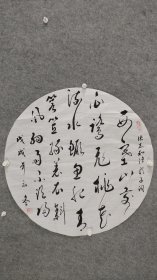 西塞山前
白鷺飛桃花
流水鱖魚肥青
箬笠綠蓑衣斜
風細雨不須歸
張志和漁歌子詞
戊戌年